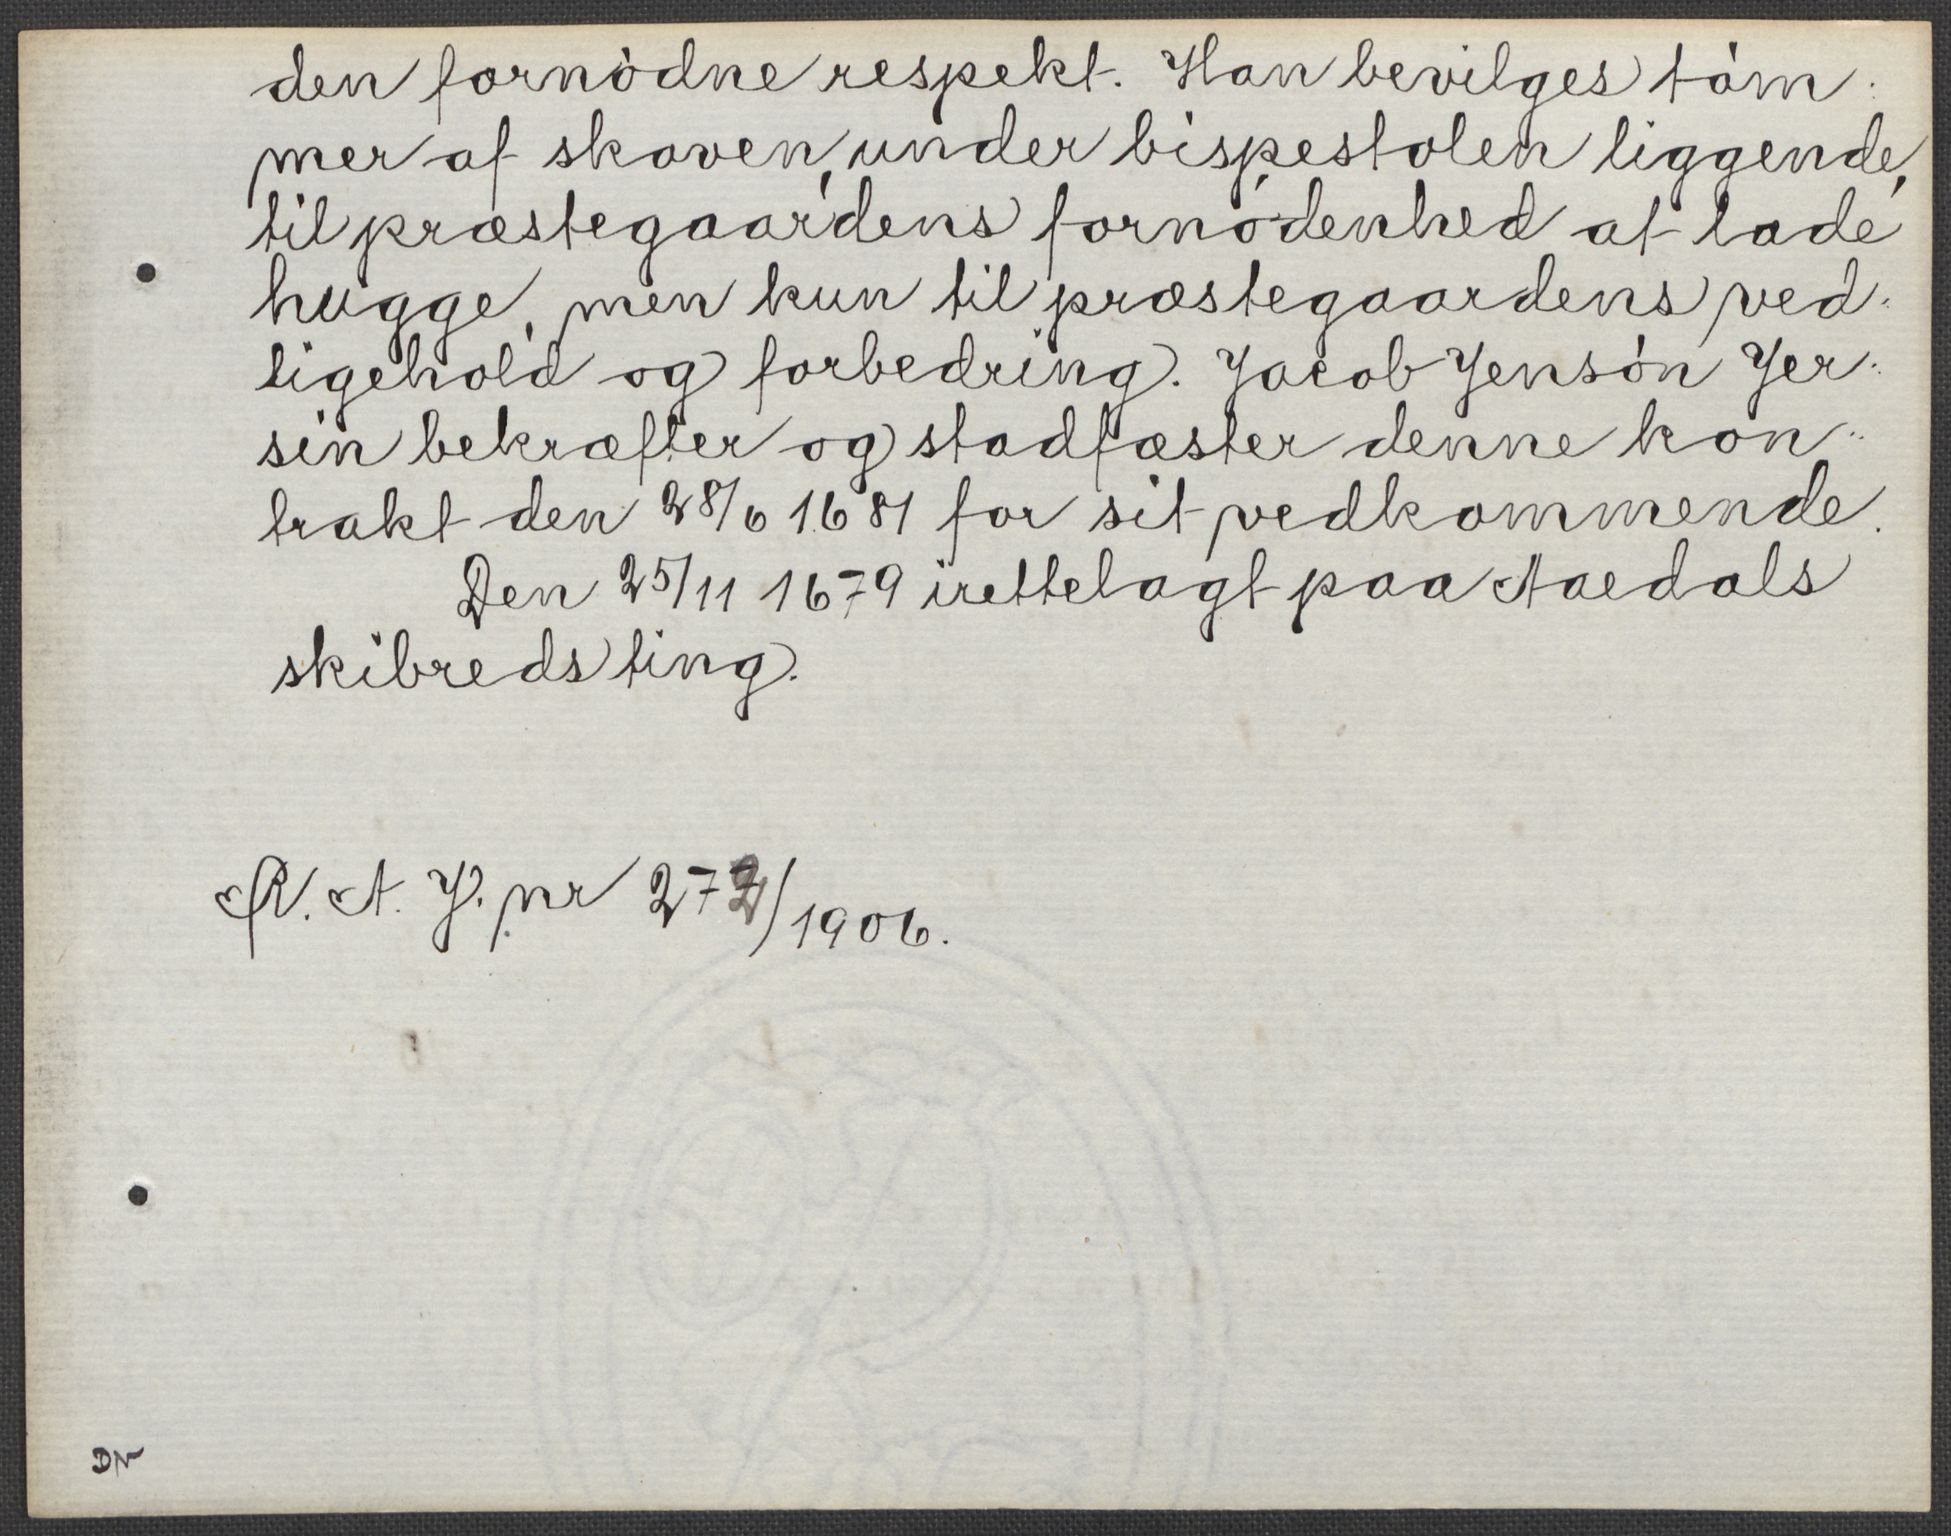 den fornòdne respekt. Han bevilges tòm:
mer af skoven, under bispestolen liggende,
til præstegaardens fornòdenhed at lade
hugge, men kun til præstegaardens ved:
ligehold og forbedring. Jacob Jensòn Jer:
sin bekræfter og stadfæster denne kon:
trakt den 28/6 1681 for sit vedkommende.
Den 25/11 1679 irettelagt paa Aaedals
skibreds ting.
R. A. J. nr 272/1906.
DN